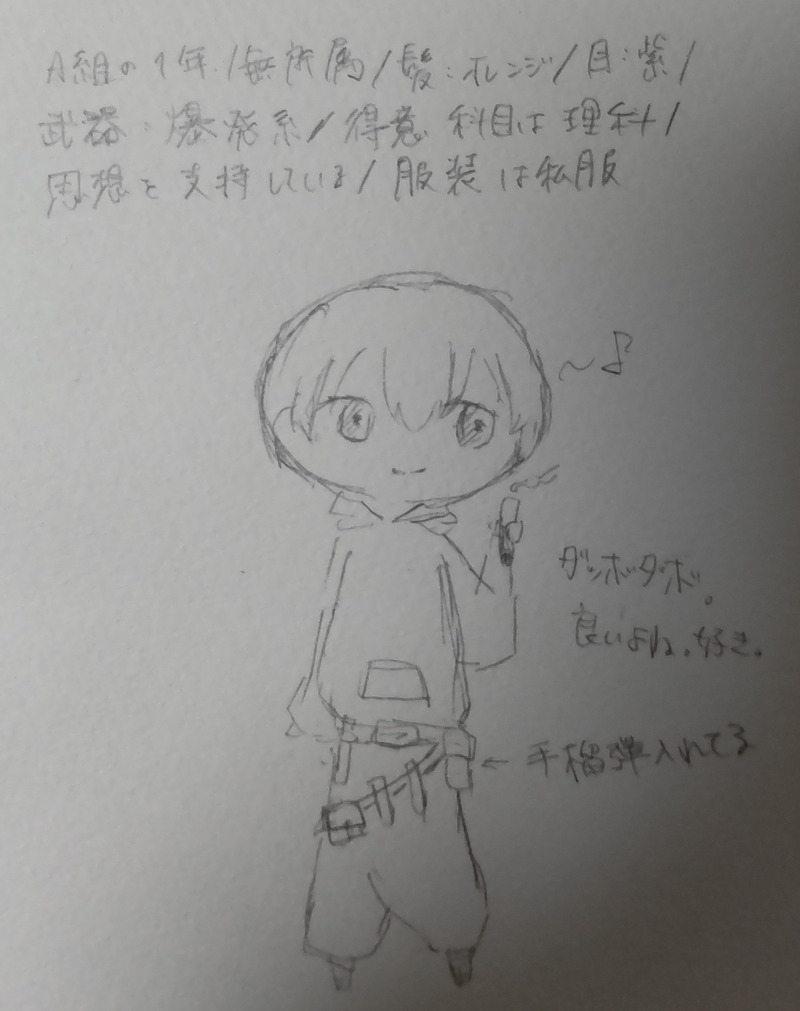 A組の1年/無所属/髪:オレンジ/目:紫/
武器:爆発系/得意科目は理科/
思想を支持している/服装は私服
~♪
ダッボダボ。
良いよね。好き。
←手榴弾入れてる